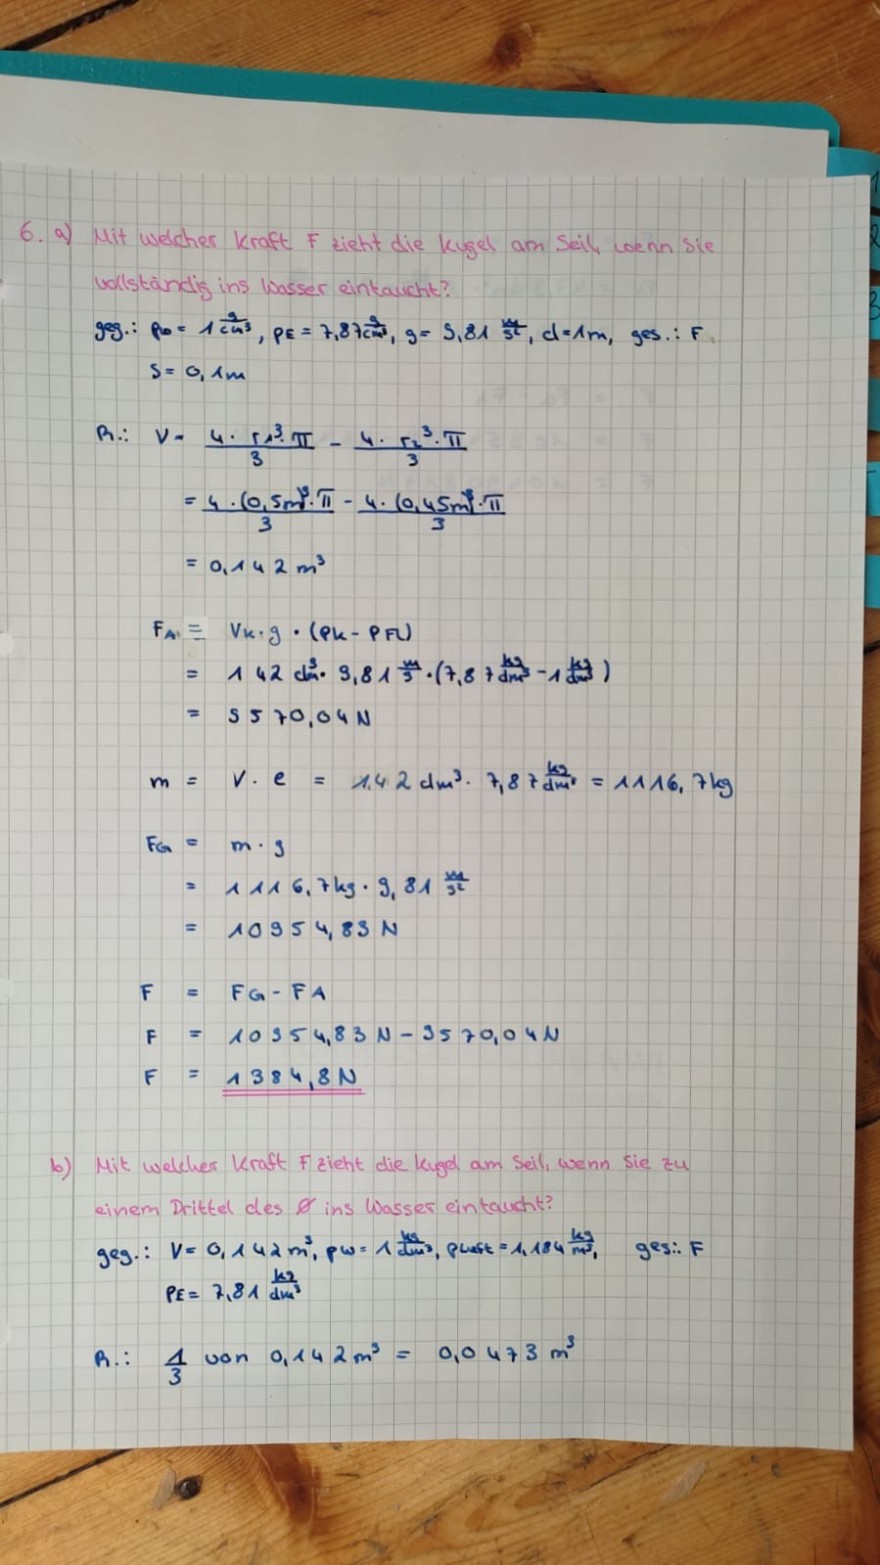 6. a) Mit welcher Kraft F zieht die Kugel am Seil, wenn Sie
vollständig ins Wasser eintaucht?
geg.: ρw = 1 g/cm³, ρE = 7,87 g/cm³, g = 9,81 m/s², d = 1m, ges.: F
S = 0,1m
R.: V = 4 · r1³ · π / 3 - 4 · r2³ · π / 3
= 4 · (0,5m)³ · π / 3 - 4 · (0,45m)³ · π / 3
= 0,142 m³
FA = VK · g · (ρK - ρFL)
= 142 dm³ · 9,81 m/s · (7,87 kg/dm³ - 1 kg/dm³)
= 9570,04 N
m = V · ρ = 142 dm³ · 7,87 kg/dm³ = 1116,7 kg
FG = m · g
= 1116,7 kg · 9,81 m/s²
= 10954,83 N
F = FG - FA
F = 10954,83 N - 9570,04 N
F = 1384,8 N
b) Mit welcher Kraft F zieht die Kugel am Seil, wenn Sie zu
einem Drittel des Ø ins Wasser eintaucht?
geg.: V = 0,142 m³, ρw = 1 kg/dm³, ρLuft = 1,184 kg/m³, ges.: F
ρE = 7,81 kg/dm³
R.: 1/3 von 0,142 m³ = 0,0473 m³
1
2
3